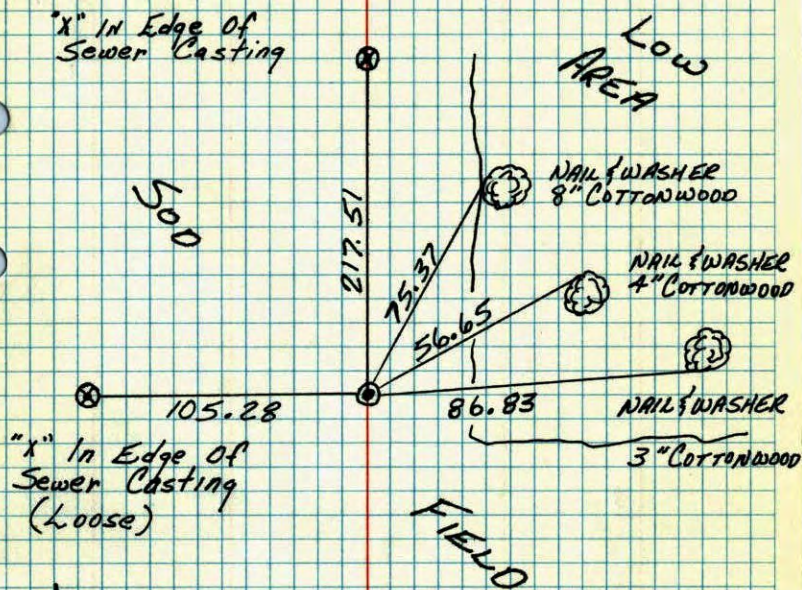 "X" In Edge Of
Sewer Casting
LOW
AREA
SOD
217.51
NAIL & WASHER
8" COTTONWOOD
75.37
NAIL & WASHER
4" COTTONWOOD
56.65
105.28
86.83
NAIL & WASHER
3" COTTONWOOD
"X" In Edge Of
Sewer Casting
(Loose)
FIELD